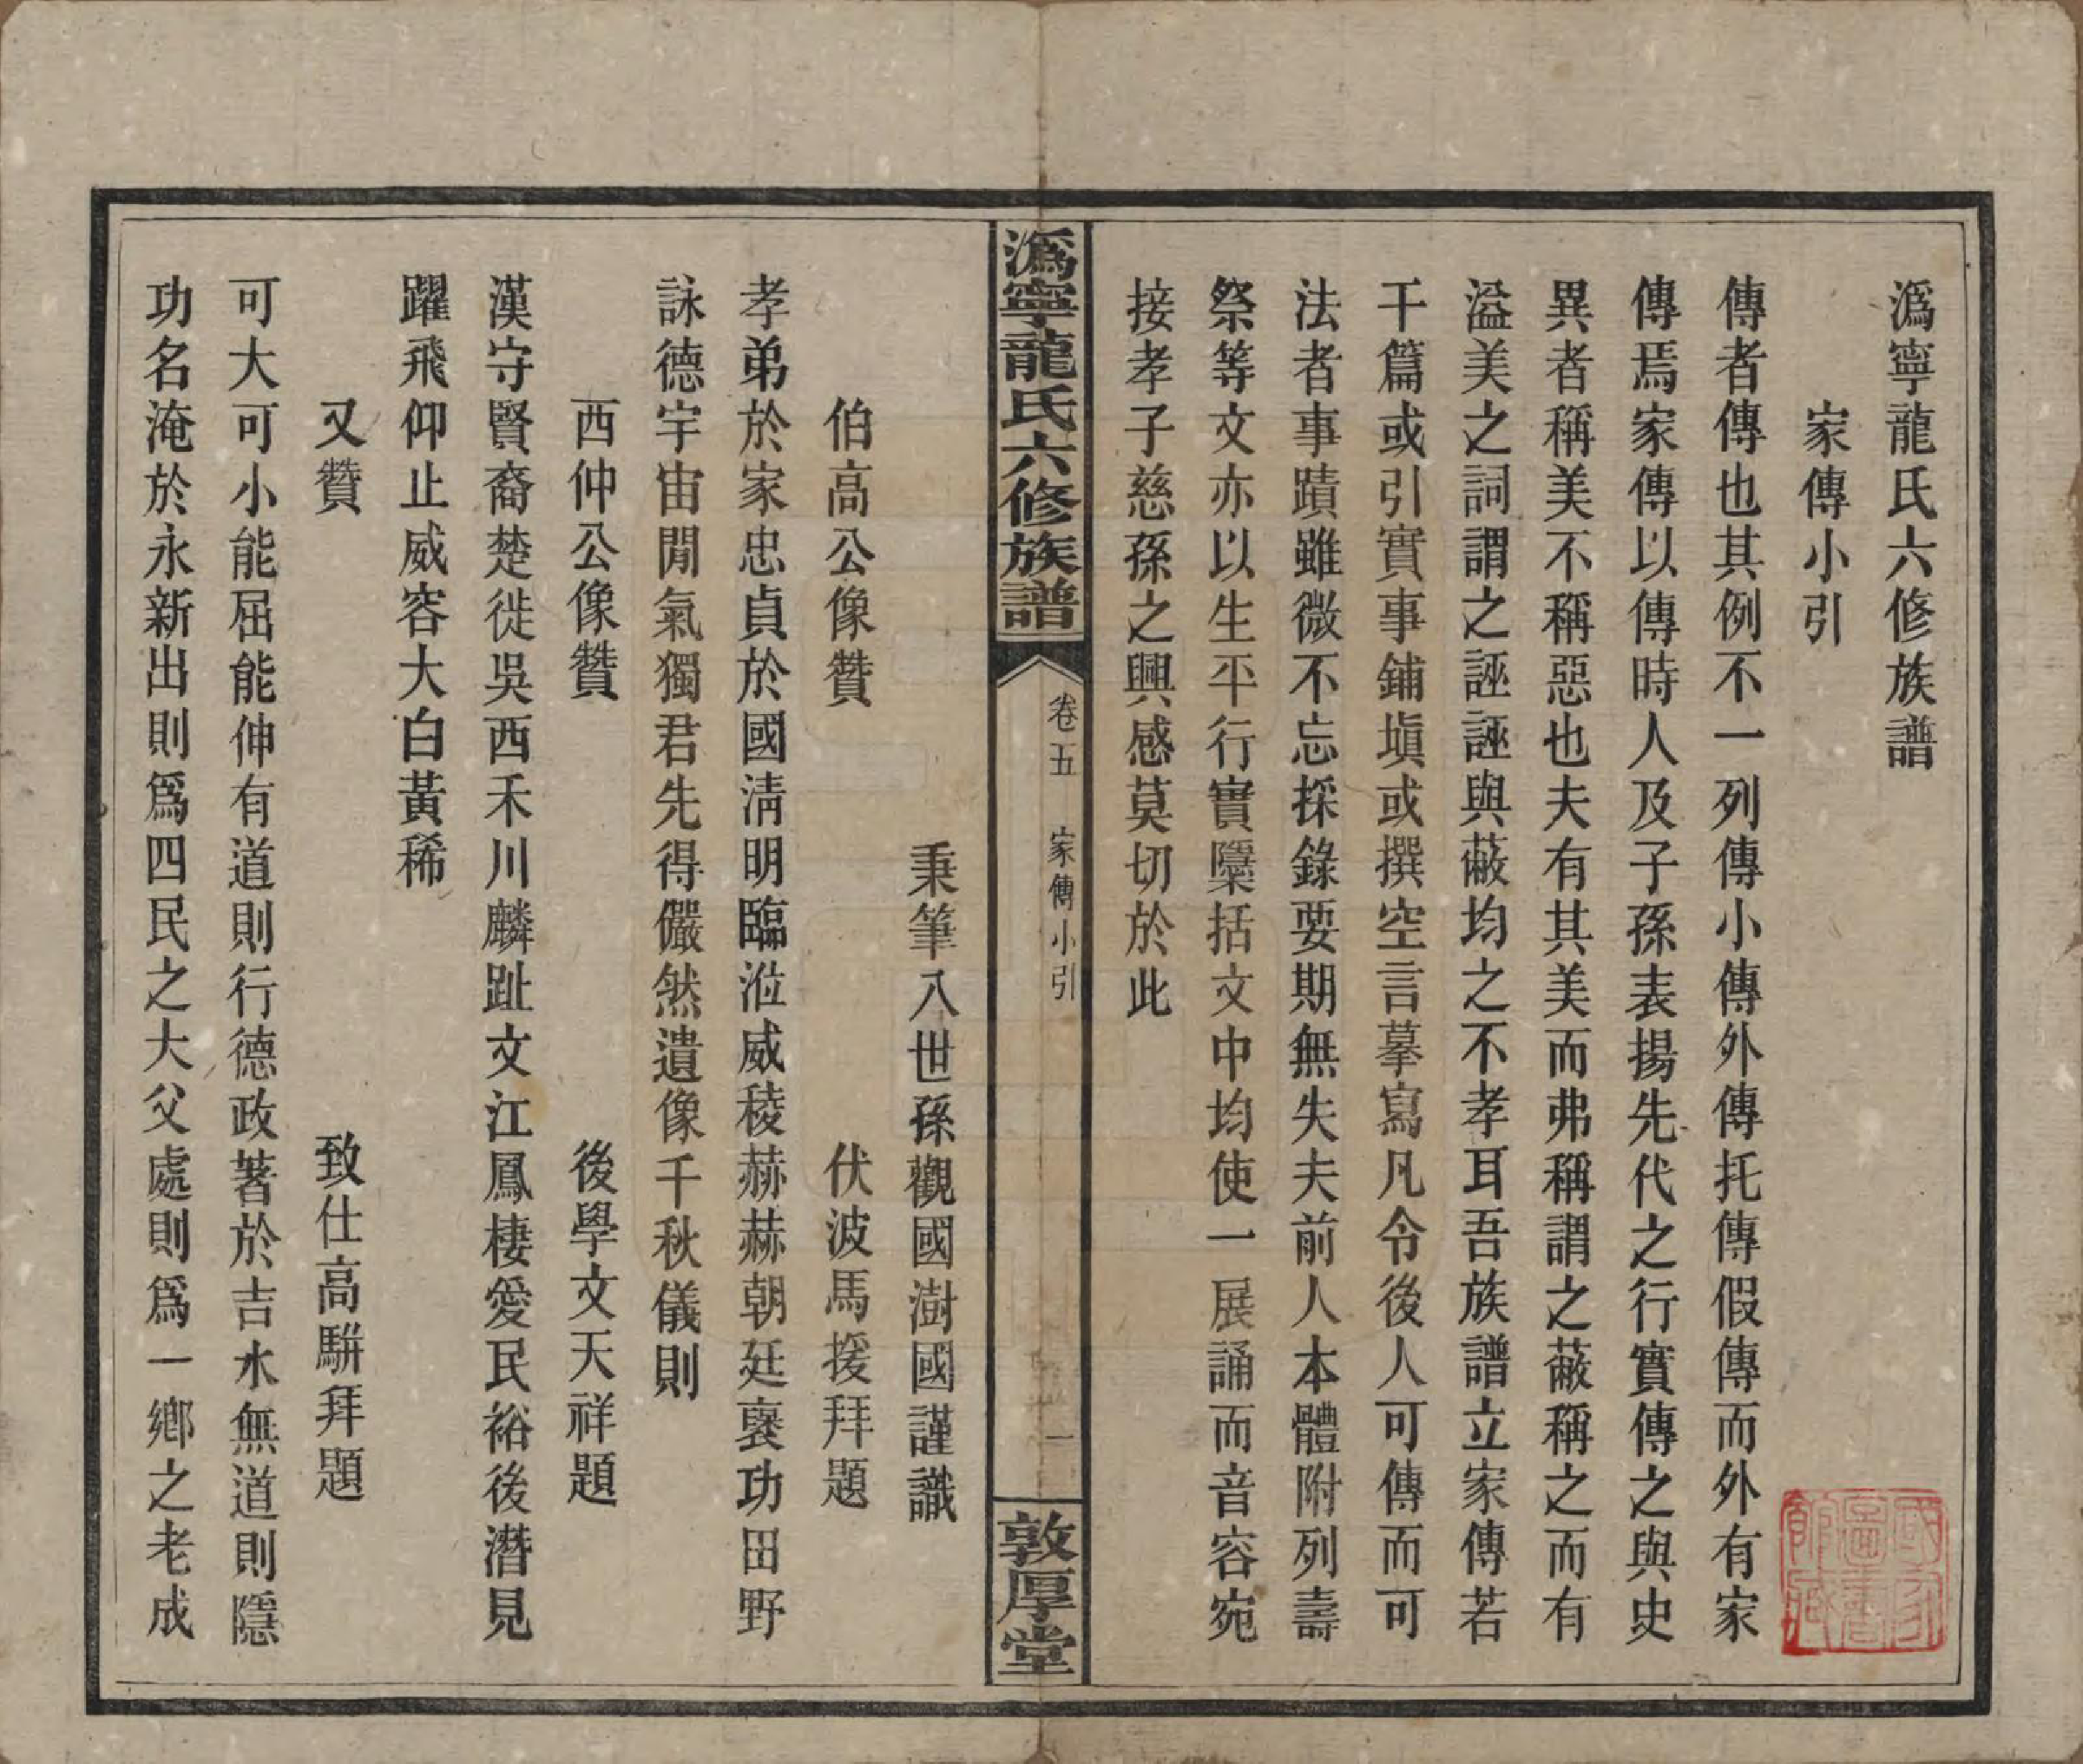 溈寧龍氏六修族譜
家傳小引
傳者傳也其例不一列傳小傳外傳托傳假傳而外有家
傳焉家傳以傳時人及子孫表揚先代之行實傳之與史
異者稱美不稱惡也夫有其美而弗稱謂之蔽稱之而有
溢美之詞謂之誣誣與蔽均之不孝耳吾族譜立家傳若
干篇或引實事鋪塡或撰空言摹寫凡令後人可傳而可
法者事蹟雖微不忘採錄要期無失夫前人本體附列壽
祭等文亦以生平行實隱括文中均使一展誦而音容宛
接孝子慈孫之興感莫切於此
溈寧龍氏六修族譜
卷五 家傳小引
一
敦厚堂
秉筆入世孫觀國澍國謹識
伯高公像贊 伏波馬援拜題
孝弟於家忠貞於國淸明臨涖威稜赫赫朝廷褒功田野
詠德宇宙閒氣獨君先得儼然遺像千秋儀則
西仲公像贊 後學文天祥題
漢守賢裔楚徙吳西禾川麟趾文江鳳棲愛民裕後潛見
躍飛仰止威容大白黃稀
又贊 致仕高駢拜題
可大可小能屈能伸有道則行德政著於吉水無道則隱
功名淹於永新出則爲四民之大父處則爲一鄉之老成
國家圖書館藏